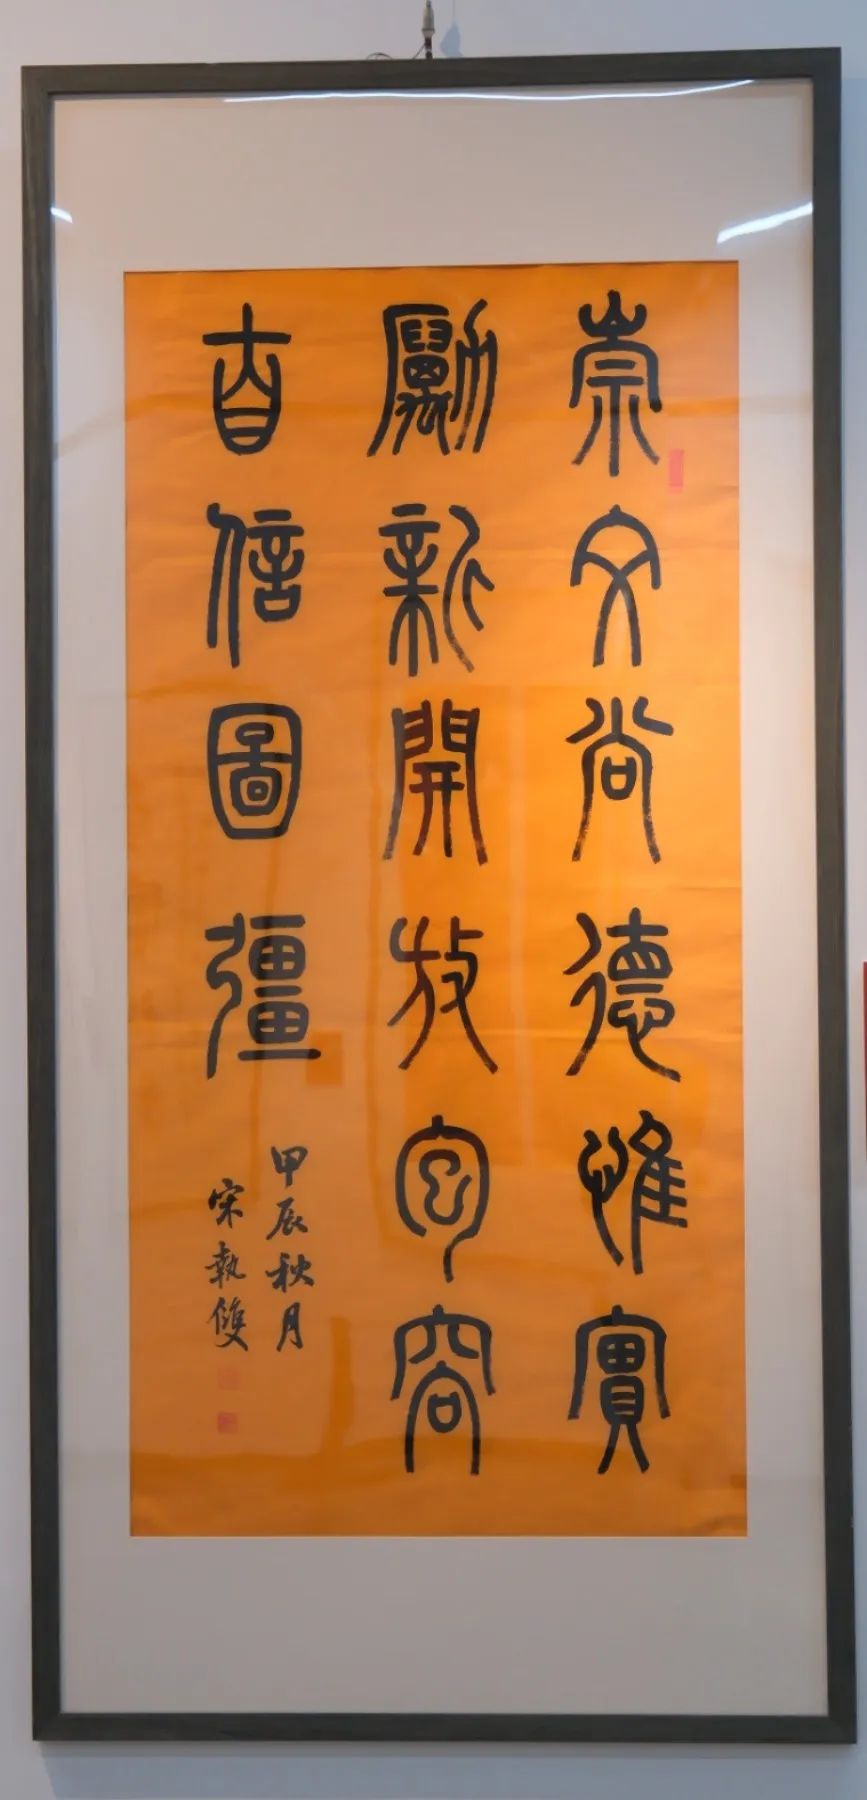 崇文尚德惟實
勵新開放包容
自信圖彊
甲辰秋月
宋執雙